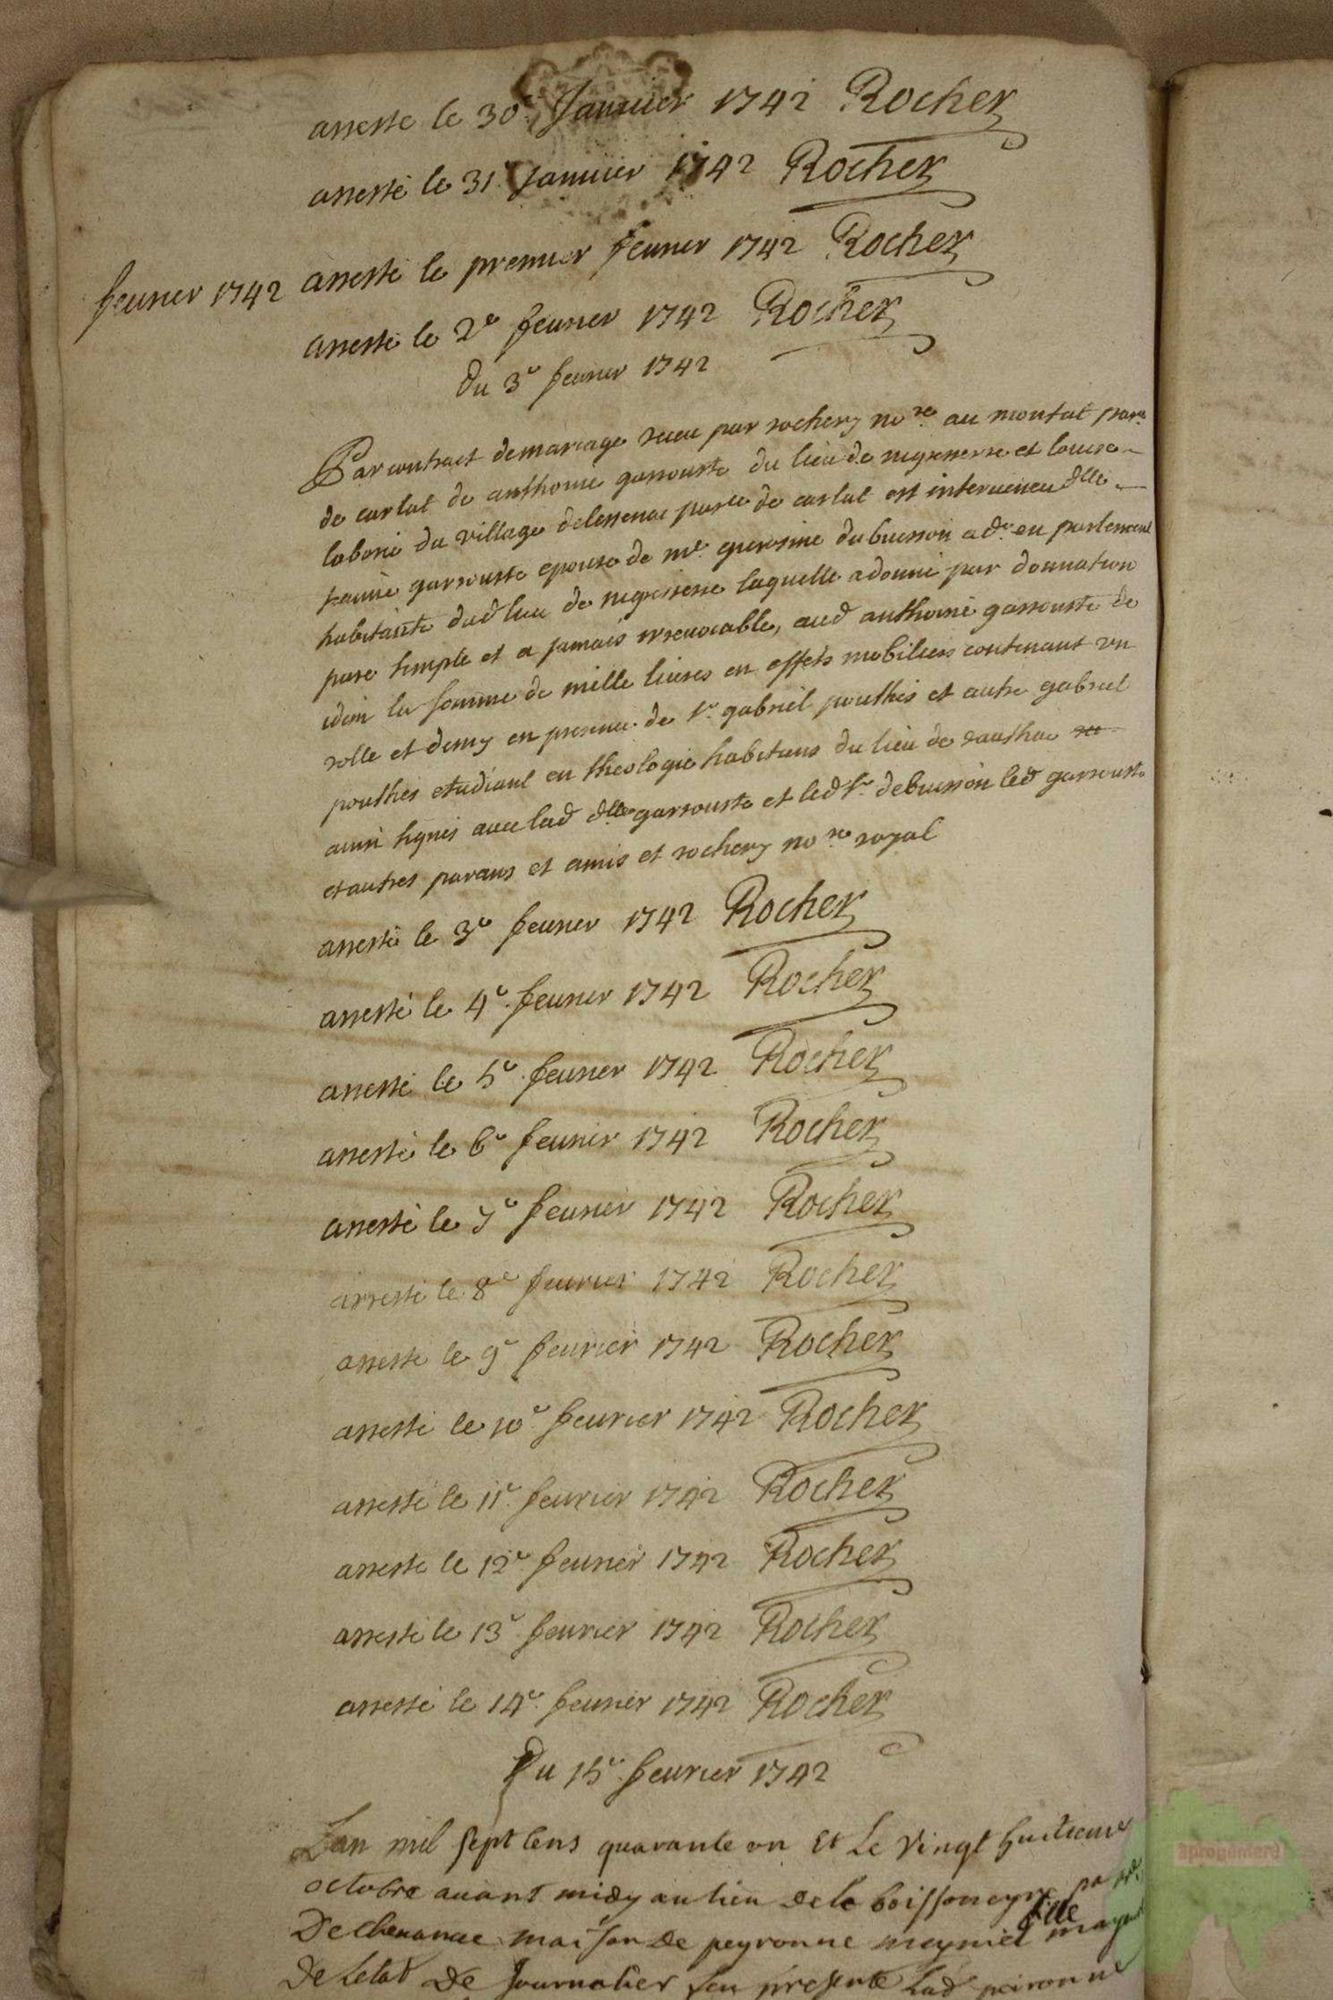 arresté le 30e Janvier 1742 Rocher
arresté le 31e Janvier 1742 Rocher
fevrier 1742 arresté le premier fevrier 1742 Rocher
arresté le 2e fevrier 1742 Rocher
Du 3e fevrier 1742
Par contract de mariage receu par rochery nore au montat parse
de carlat de anthoine garrouste du lieu de negreserre et louise
laborie du village delessenac parse de carlat est interveneu dlle
garrouste epouse de me dubuisson adt en parlement
habitante dud lieu de negreserre laquelle a donné par donnation
pure simple et a jamais irrevocable, aud anthoine garrouste de
la somme de mille livres en effets mobiliers contenant un
rolle et demy en presence de sr gabriel pouthes et autre gabriel
pouthes etudiant en theologie habitans du lieu de
ainsi signés avec lad dlle garrouste et led sr debuisson led garrouste
et autres parans et amis et rochery nore royal
arresté le 3e fevrier 1742 Rocher
arresté le 4e fevrier 1742 Rocher
arresté le 5e fevrier 1742 Rocher
arresté le 6e fevrier 1742 Rocher
arresté le 7e fevrier 1742 Rocher
arresté le 8e fevrier 1742 Rocher
arresté le 9e fevrier 1742 Rocher
arresté le 10e fevrier 1742 Rocher
arresté le 11e fevrier 1742 Rocher
arresté le 12e fevrier 1742 Rocher
arresté le 13e fevrier 1742 Rocher
arresté le 14e fevrier 1742 Rocher
Du 15e fevrier 1742
Lan mil sept cens quarante un et Le vingt huitieme
octobre avant midy au lieu de la boissoneyre
De maison de peyronne meyniel fille
De Lelat De Journalier feu presente Lad peironne
aprogemere